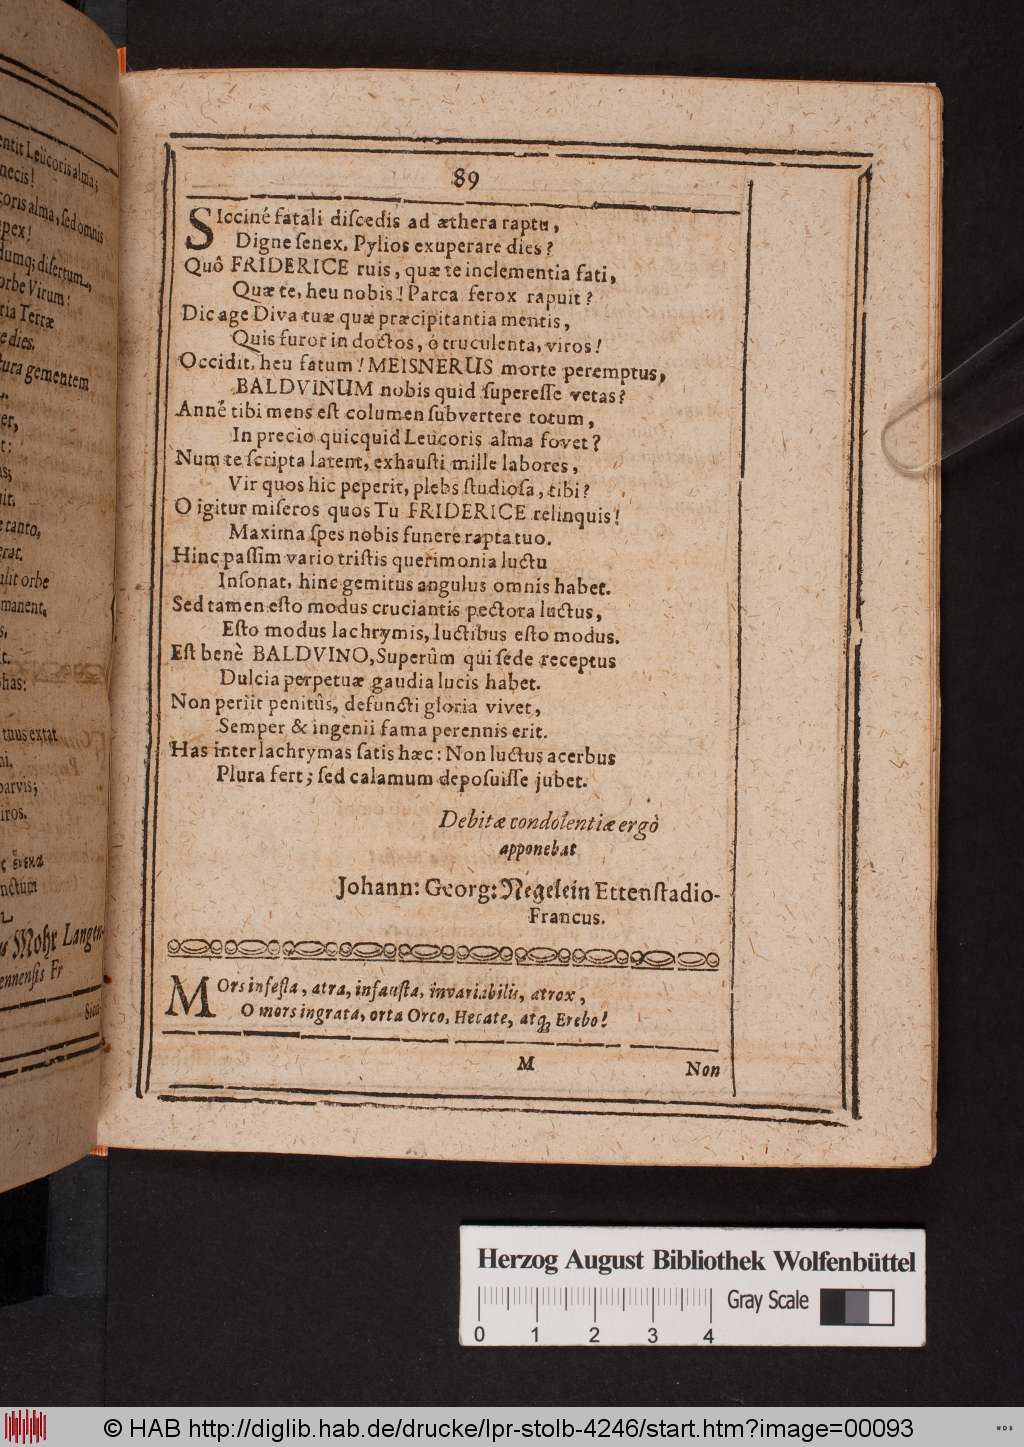 entit Leücoris alma;
necis!
coris alma, sed omnis
pex!
dumq; disertum,
orbe Virum!
ria Terræ
e dies.
tura gementem
er,
t:
uit.
e tanto,
rat.
ulit orbe
manent,
s,
t.
phas:
tuus extat
ni.
parvis;
iros.
ς ἕνεκα
nctum
us Mohr Langen-
ennensis Fr
Sicci-
89
SIcciné fatali discedis ad æthera raptu,
Digne senex, Pylios exuperare dies?
Quô FRIDERICE ruis, quæ te inclementia fati,
Quæ te, heu nobis! Parca ferox rapuit?
Dic age Diva tuæ quæ præcipitantia mentis,
Quis furor in doctos, ô truculenta, viros!
Occidit, heu fatum! MEISNERUS morte peremptus,
BALDVINUM nobis quid superesse vetas?
Anné tibi mens est columen subvertere totum,
In precio quicquid Leücoris alma fovet?
Num te scripta latent, exhausti mille labores,
Vir quos hic peperit, plebs studiosa, tibi?
O igitur miseros quos Tu FRIDERICE relinquis!
Maxima spes nobis funere rapta tuo.
Hinc passim vario tristis querimonia luctu
Insonat, hinc gemitus angulus omnis habet.
Sed tamen esto modus cruciantis pectora luctus,
Esto modus lachrymis, luctibus esto modus.
Est benè BALDVINO, Superûm qui sede receptus
Dulcia perpetuæ gaudia lucis habet.
Non periit penitûs, defuncti gloria vivet,
Semper & ingenii fama perennis erit.
Has inter lachrymas satis hæc: Non luctus acerbus
Plura fert; sed calamum deposuisse jubet.
Debitæ condolentiæ ergò
apponebat
Johann: Georg: Negelein Ettenstadio-
Francus.
MOrs infesta, atra, infausta, invariabilis, atrox,
O mors ingrata, orta Orco, Hecate, atq; Erebo!
M Non
Herzog August Bibliothek Wolfenbüttel
Gray Scale
0 1 2 3 4
© HAB http://diglib.hab.de/drucke/lpr-stolb-4246/start.htm?image=00093